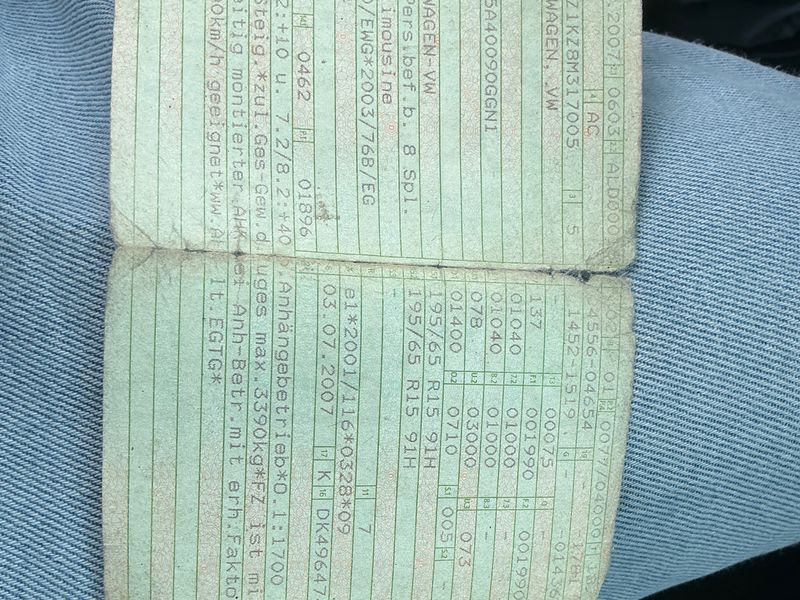 .2007 0603 ALD000
AC
Z1KZ8M317005 5
WAGEN,VW
5A40090GGN1
WAGEN-VW
Pers.bef.b. 8 Spl.
imousine
/EWG*2003/768/EG
0462 01896
2:+10 u. 7.2/8.2:+40
Steig.*zul.Ges-Gew.d
eitig montierter AHK
00km/h geeignet*ww.A
02 01 0077/04000
4556-04654
1452-1519 -
- 00075
137 001990 001990
01040 01000 -
01040 01000 -
078 03000 073
01400 0710 005
195/65 R15 91H
195/65 R15 91H
-
-
7
e1*2001/116*0328*09
03.07.2007 K DK49647
.Anhängebetrieb*0.1:1700
uges max.3390kg*FZ ist mi
ei Anh-Betr.mit erh.Fakto
lt.EGTG*